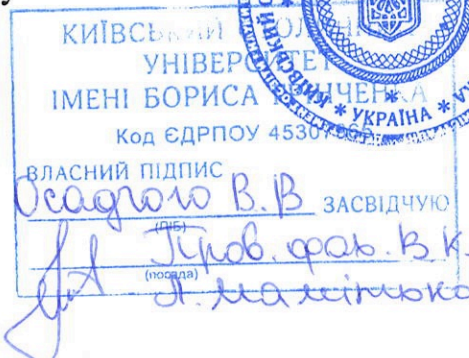 КИЇВСЬКИЙ
УНІВЕРСИТЕТ
ІМЕНІ БОРИСА ГРІНЧЕНКА
Код ЄДРПОУ 45307
* УКРАЇНА *
ВЛАСНИЙ ПІДПИС
Осадчого В.В ЗАСВІДЧУЮ
(ПІБ)
Пров. фах. В.К.
(посада)